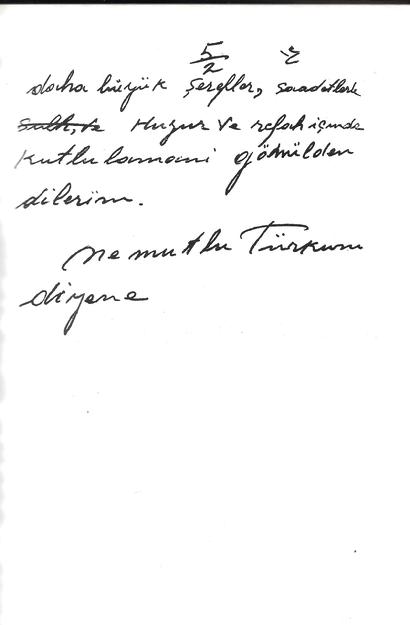 5/2
daha büyük şerefler, saadetlerle
sulh, ve Huzur ve refah içinde
kutlulamanı gönülden
dilerim.
Ne mutlu Türküm
diyene